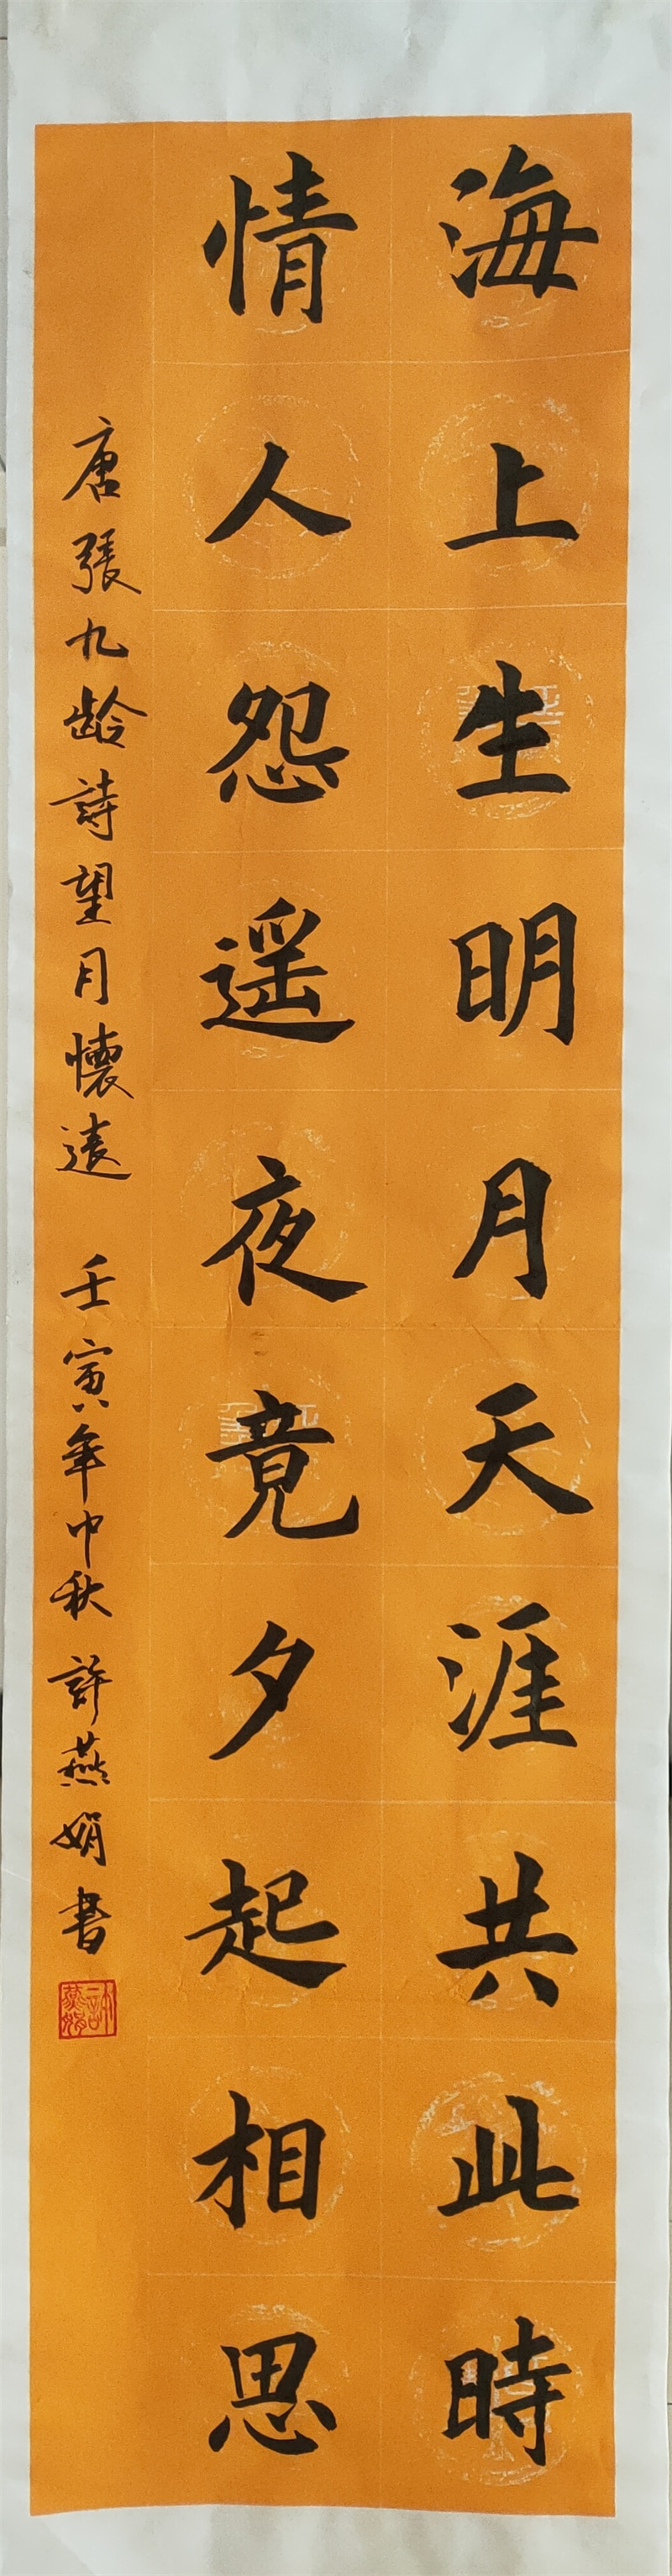 海上生明月天涯共此時
情人怨遥夜竟夕起相思
唐張九齡詩望月懷遠 壬寅年中秋 許燕娟書
許燕娟